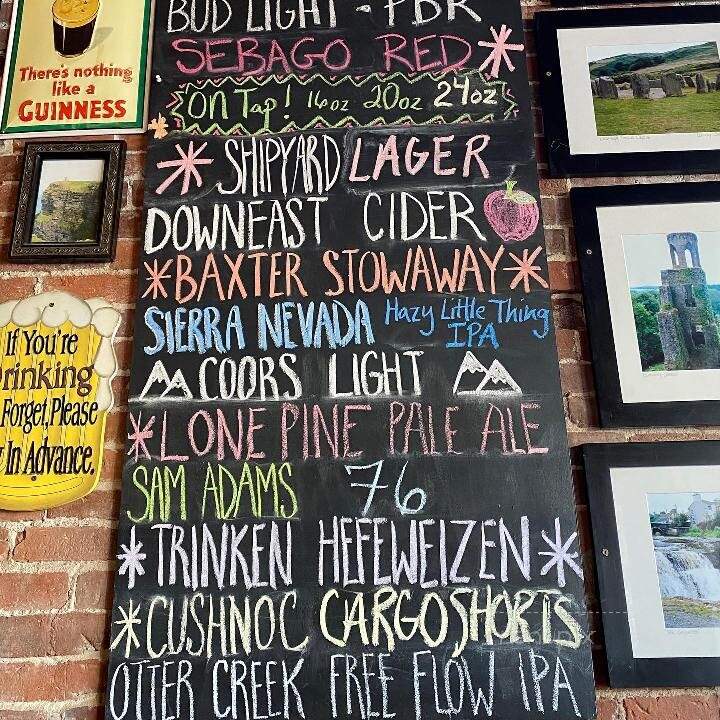 BUD LIGHT - PBR
SEBAGO RED
ON Tap! 16oz 20oz 24oz
SHIPYARD LAGER
DOWNEAST CIDER
BAXTER STOWAWAY
SIERRA NEVADA Hazy Little Thing
IPA
COORS LIGHT
LONE PINE PALE ALE
SAM ADAMS 76
TRINKEN HEFEWEIZEN
CUSHNOC CARGOSHORTS
OTTER CREEK FREE FLOW IPA
There's nothing
like a
GUINNESS
If You're
rinking
Forget, Please
In Advance.